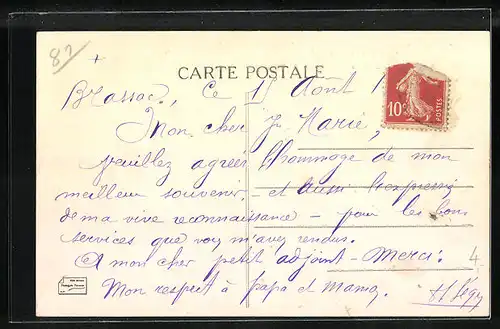 82
+
CARTE POSTALE
Brassac, Ce 15 Août
10c
POSTES
Mon cher Marie,
veuillez agréer l'hommage de mon
meilleur souvenir - et aussi l'expression
de ma vive reconnaissance - pour les bons
services que voy m'avez rendus.
A mon cher petit adjoint - Merci.
4
Mon respect à papa et mama.